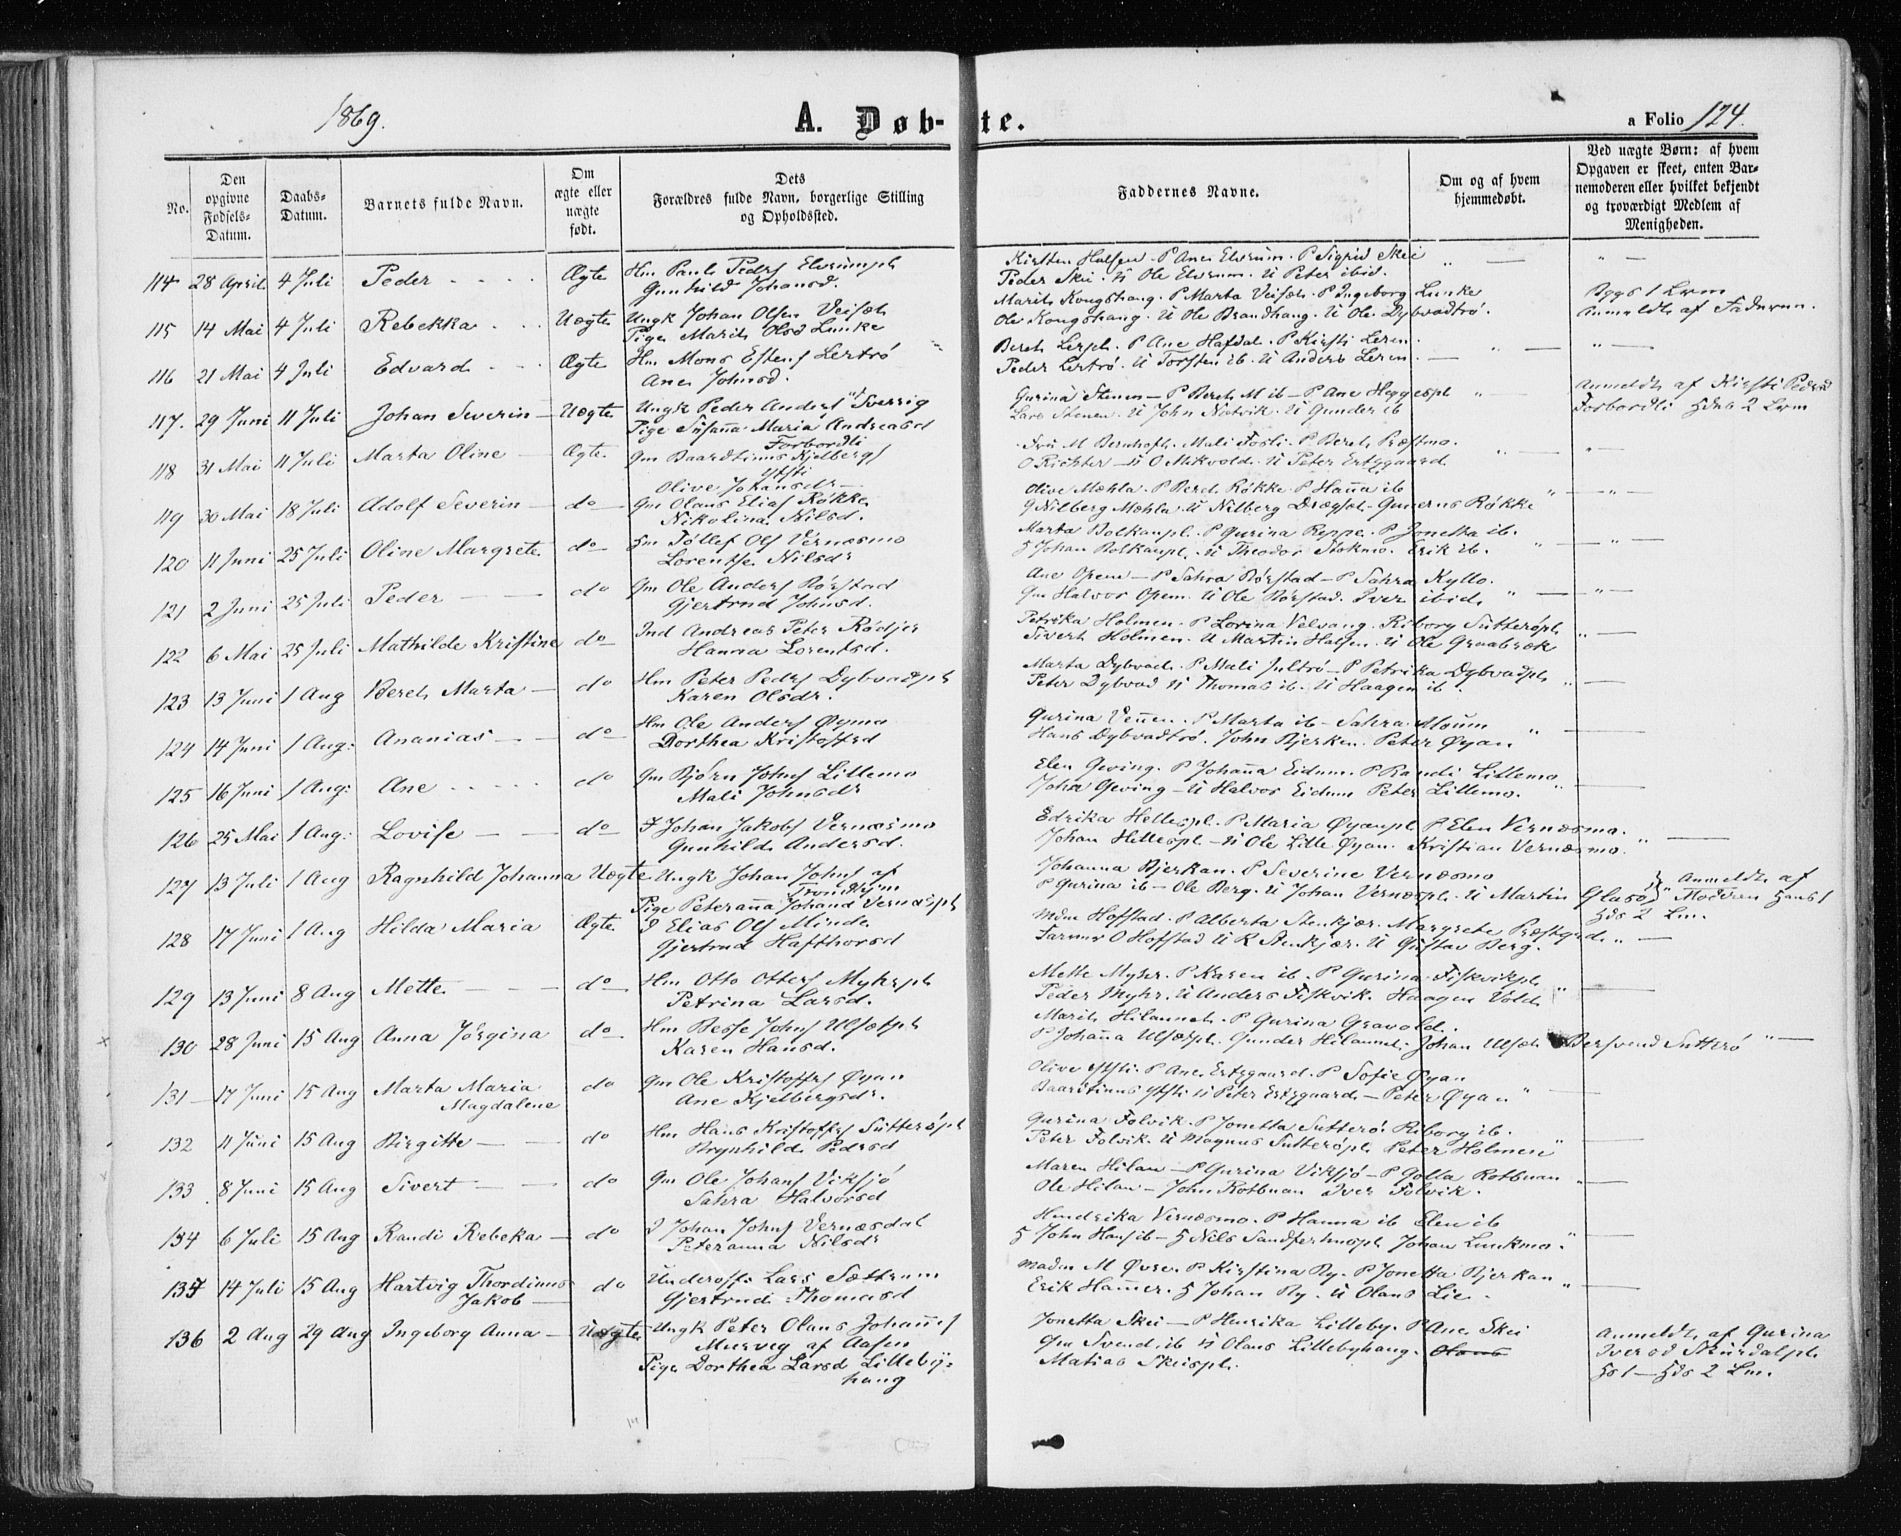 1869.
A. Døb-
te.
a Folio 124.
No.
Den opgivne Fødsels-Datum.
Daabs-Datum.
Barnets fulde Navn.
Om ægte eller uægte født.
Dets Forældres fulde Navn, borgerlige Stilling og Opholdssted.
Faddernes Navne.
Om og af hvem hjemmedøbt.
Ved uægte Børn: af hvem Opgaven er skeet, enten Barnemoderen eller hvilket bekjendt og troværdigt Medlem af Menigheden.
114 28 April 4 Juli Peder Ægte Hm Paul Peders
Gunhild Johansd.
Kirsten Halsen. P Ane Elvrum. P Sigrid Skei
Peder Skei. U Ole Elvrum. U Peter ibid.
115 14 Mai 4 Juli Rebekka Uægte Ungk Johan Olsen Veisæt
Pige Marit Olsd Lunke
Marit Kongshaug. P Marta Veisæt. P Ingeborg Lunke
Ole Kongshaug. U Ole Brandhaug. U Ole Dybvadtrø.
Anmeldt af Faderen.
116 21 Mai 4 Juli Edvard Ægte Hm Mons Estens Lertrø
Ane Johnsd.
Beret P Ane Hafdal. P Kirsti Leren.
Peder Lertrø. U Torsten ib. U Anders Leren.
117. 29 Juni 11 Juli Johan Severin Uægte Ungk Peder Anders Sverrig
Pige Susanna Maria Andreasd
Forbordli
Gurina Stenen P Beret M ib P Ane
Lars Stenen. U John U Gunder ib
Anmeldt af Kirsti Pedersd
Forbordli 2
118 31 Mai 11 Juli Marta Oline Ægte Gm Baardtinus Kjelbergs
Ytsti
Olive Johansdr
Fru M Bernhoft. Mali Fosli. P Beret Præstmo.
O Richter U O Mikvold. U Peter Ertzgaard
119 30 Mai 18 Juli Adolf Severin do Gm Olaus Elias Røkke
Nikolina Nilsd.
Olive Mæhla. P Beret Røkke. P Hanna ib
Nilberg Mæhla. U Nilberg Gunerus Røkke
120 11 Juni 25 Juli Oline Margrete do Hm Tollef Ols Vernæsmo
Lorentse Nilsdr
Marta P Gurina Reppe. P Jonetta ib.
Johan U Theodor Stokmo. Erik ib.
121 2 Juni 25 Juli Peder do Gm Ole Anders Børstad
Gjertrud Johnsd.
Ane Opem P Sahra Børstad P Sahra Kyllo.
Gm Halvor Opem. U Ole Børstad. Iver ibid.
122 6 Mai 25 Juli Mathilde Kristine do Ind Andreas Peter Rødjer
Hanna Lorentsd.
Petrika Holmen. P Lorina Velvang. Riborg Sutterøpl
Sivert Holmen. U Martin Halsen. U Ole Graabræk
123 13 Juni 1 Aug Beret Marta do Hm Peter Peders Dybvadpl
Karen Olsdr.
Marta Dybvad. P Mali Jultrø P Petrika Dybvadpl
Peter Dybvad U Thomas ib. U Haagen ib.
124 14 Juni 1 Aug: Ananias do Hm Ole Anders Øymo
Dorthea Kristoffsd
Gurina P Marta ib Sahra Moum
Hans Dybvadtrø. John Bjerken. Peter Øyan
125 16 Juni 1 Aug: Ane do Gm Bjørn Johns Lillemo
Mali Johnsdr
Elen Geving. P Johanna Eidum. P Randi Lillemo
John Geving U Halvor Eidum Peter Lillemo.
126 25 Mai 1 Aug: Lovise do I Johan Jakobs Vernæsmo
Gunhild Andersd.
Edrika Hellespl. P Maria Øyanpl P Elen Vernæsmo.
Johan Hellespl U Ole Lille Øyan. Kristian Vernæsmo.
127 13 Juli 1 Aug Ragnhild Johanna Uægte Ungk Johan Johns af
Trondhjem
Pige Peteranna Johansd Vernæspl
Johanna Bjerkan. P Severine Vernæsmo
P Gurina ib Ole Berg. U Johan Vernæspl. U Martin Glasø
Anmeldt af
Moderen Hans 1
Hds 2 Lm.
128 17 Juni 1 Aug Hilda Maria Ægte I Elias Ols Minde
Gjertrud Hafthorsd
Mdm Hofstad. P Alberta Stenkjær. Margrete
O Hofstad U R Stenkjær. U Gustav Berg.
129 13 Juni 8 Aug Mette do Hm Otto Otters Myhrpl
Petrina Larsd.
Mette Myhr. P Karen ib. P Gurina Fiskvikpl
Peder Myhr. U Anders Fiskvik. Haagen Vold
130 28 Juni 15 Aug Anna Jørgina do Hm Besse Johns Ulsætpl
Karen Hansd.
Marit Hilannet. P Gurina Gravold.
P Johanna Ulsætpl. Gunder Hilannet. Johan Ulsæt Bersvend Sutterø
131 17 Juni 15 Aug Marta Maria
Magdalene
do Gm Ole Kristoffs Øyan
Ane Kjelbergsdr.
Olive Ytsti. P Ane Ertzgaard. P Sofie Øyan
Baartinus Ytsti U Peter Ertzgaard Peter Øyan
132 11 Juni 15 Aug Birgitte do Hm Hans Kristoffs Sutterøpl
Brynhild Pedersd
Gurina Folvik. P Jonetta Sutterø. Riborg ib.
Peter Folvik. U Magnus Sutterøpl. Peter Holmen
133 8 Juni 15 Aug Sivert do Gm Ole Johans Viksjø
Sahra Halvorsd
Maren Hilan P Gurina Viksjø P Golla Rotbuan
Ole Hilan John Rotbuan Iver Folvik.
134 6 Juli 15 Aug Randi Rebeka do I Johan Johns Vernæsdal
Peteranna Nilsdr
Hendrika Vernæsmo. P Hanna ib Elen ib
John Hans ib Nils Johan Lunkmo.
135 14 Juli 15 Aug Hartvig Thordinus
Jakob
do Underoff. Lars Sættrum
Gjertrud Thomasd
Madm M Øvre. P Kirstina By. P Jonetta Bjerkan
Erik Hammer. Johan By. U Olaus Lie.
136 2 Aug 29 Aug Ingeborg Anna Uægte Ungk Peter Olaus Johannes
af Aasen
Pige Dorthea Larsd Lilleby-
haug
Jonetta Skei P Henrika Lilleby. P Ane Skei
Gm Svend ib U Olaus Lillebyhaug. Olaus
Matias Skeispl.
Anmeldt af Gurina
Iversd
Hs 1 Hds 2 Lm.